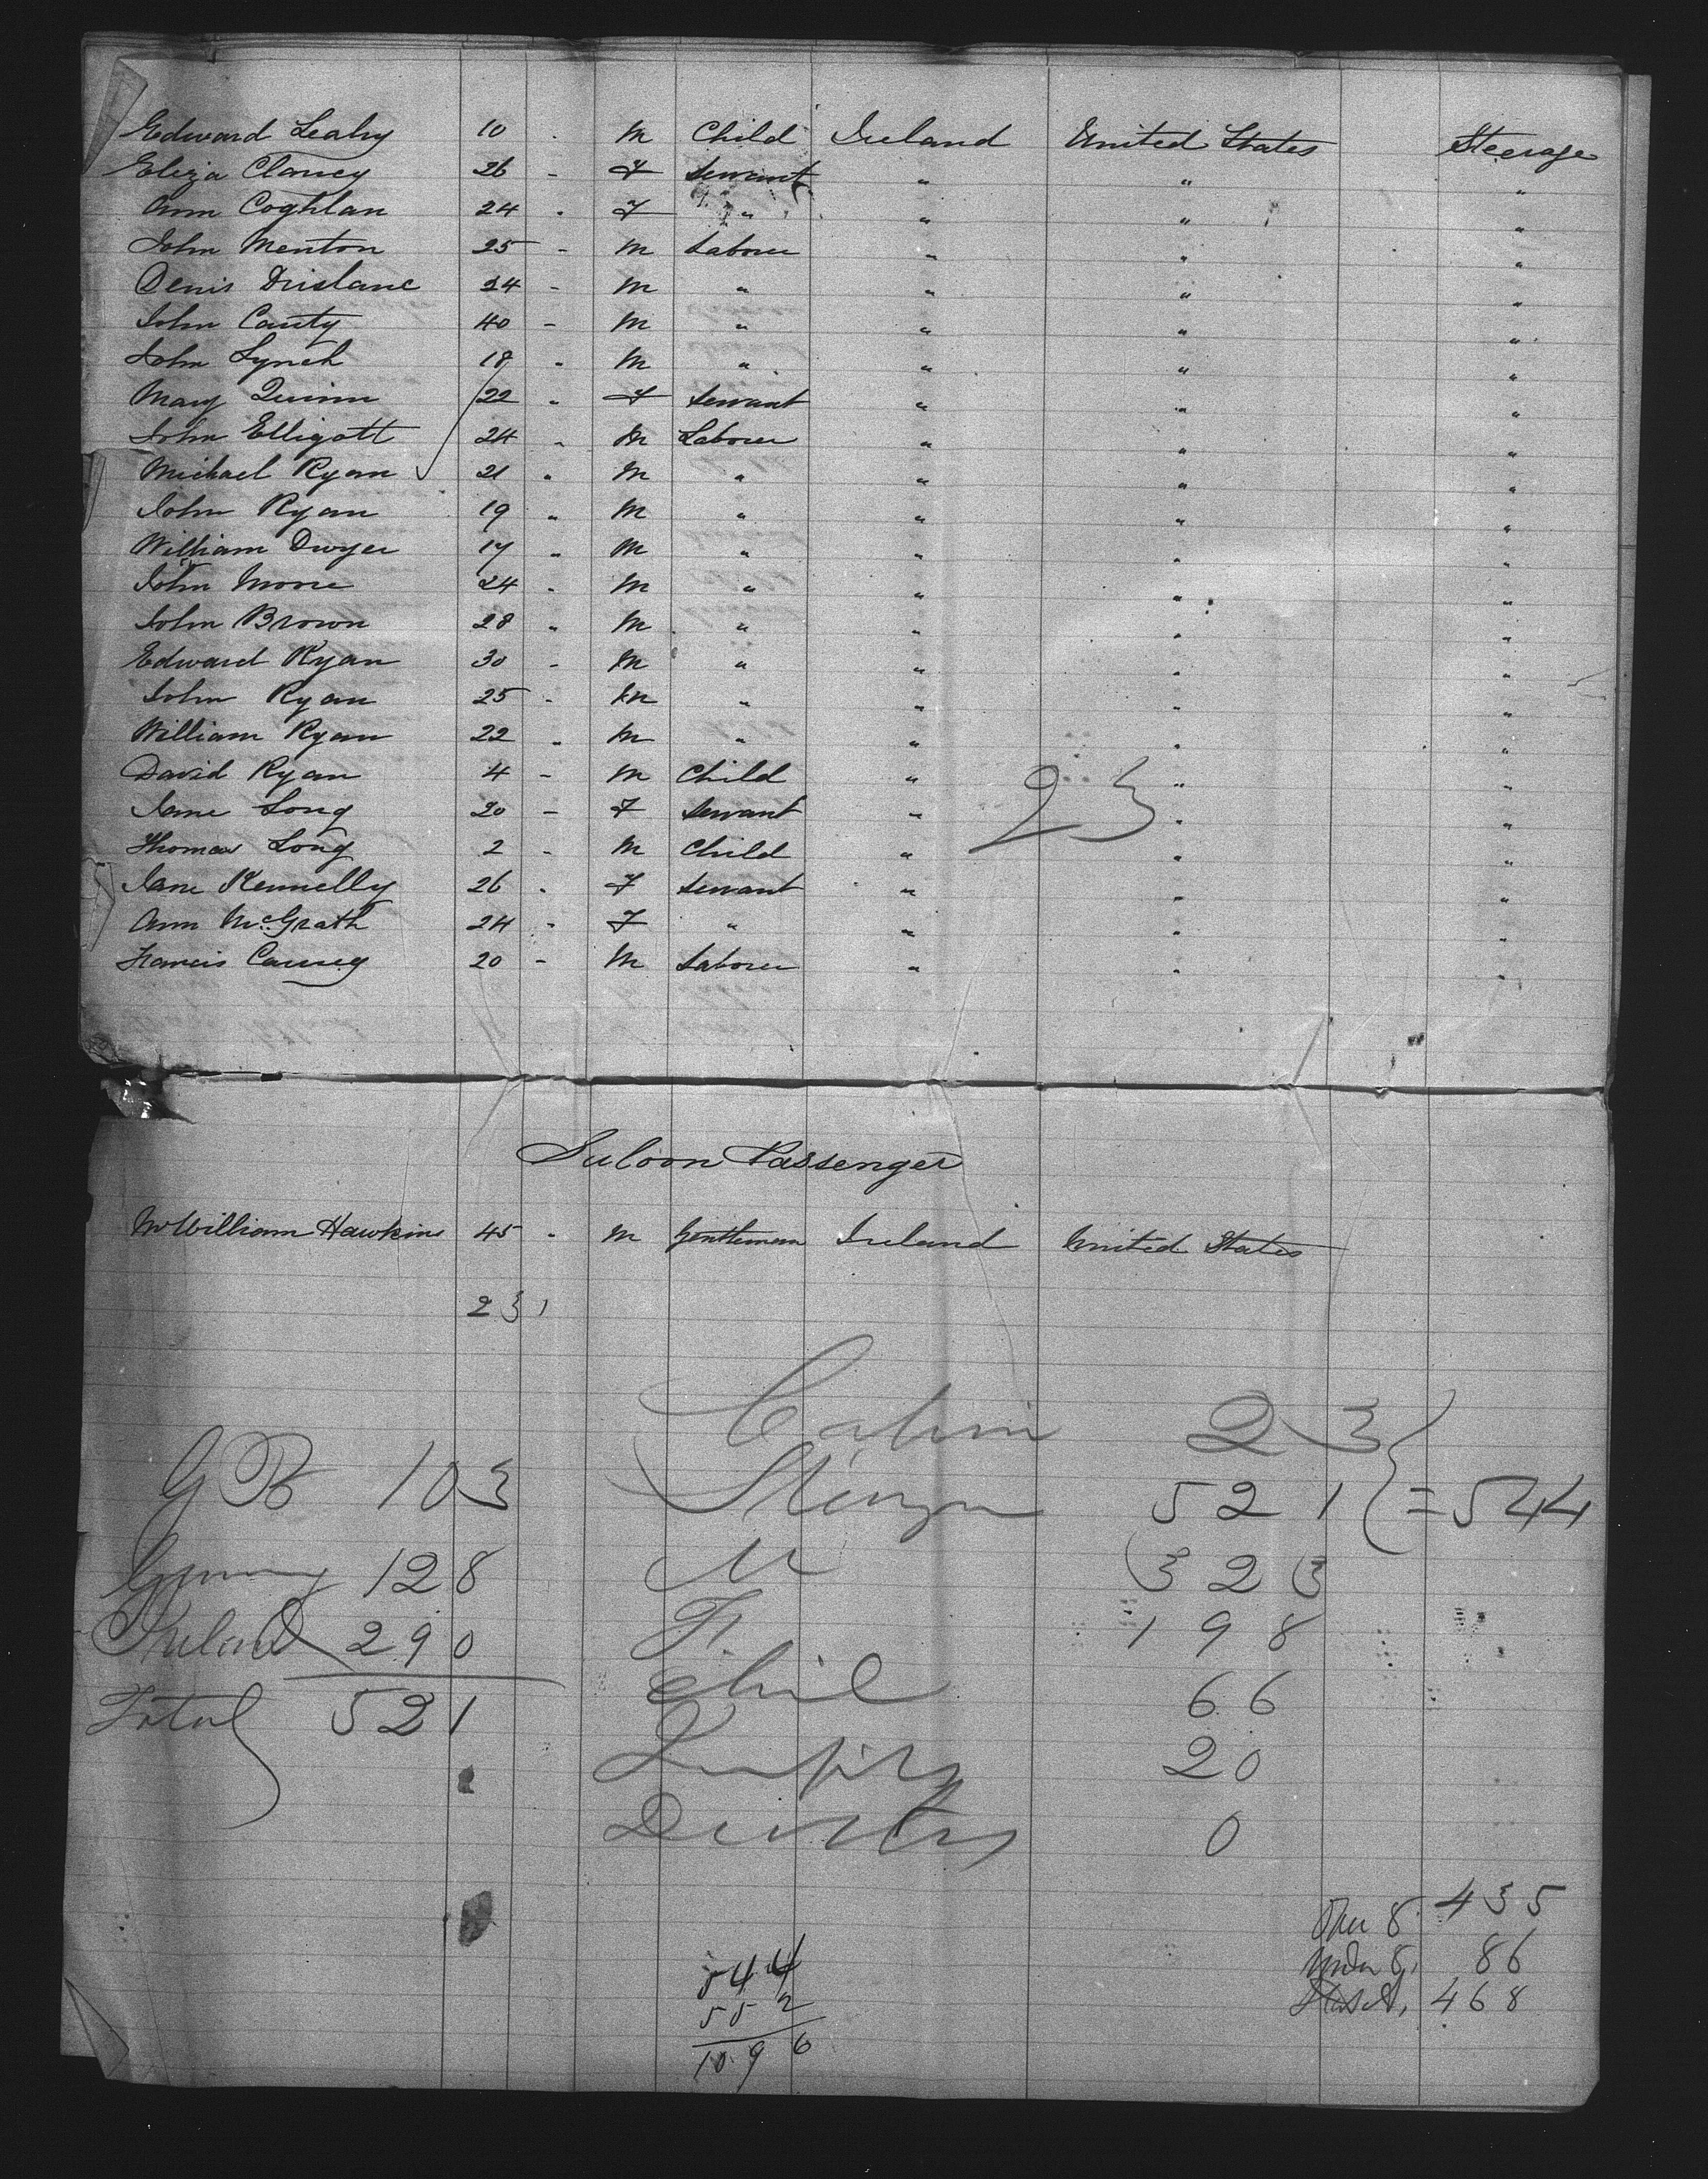 Edward Leahy 10 - M Child Ireland United States Steerage
Eliza Clancy 26 - F Servant " " "
Ann Coghlan 24 - F " " " "
John Menton 25 - M Laborer " " "
Denis Drislane 24 - M " " " "
John Canty 40 - M " " " "
John Lynch 18 - M " " " "
Mary Quinn 22 - F Servant " " "
John Elligott 24 - M Laborer " " "
Michael Ryan 21 - M " " " "
John Ryan 19 - M " " " "
William Dwyer 17 - M " " " "
John Moore 24 - M " " " "
John Brown 28 - M " " " "
Edward Ryan 30 - M " " " "
John Ryan 25 - M " " " "
William Ryan 22 - M " " " "
David Ryan 4 - M Child " " "
23
Jane Long 20 - F Servant " " "
Thomas Long 2 - M Child " " "
Jane Kennelly 26 - F Servant " " "
Ann McGrath 24 - F " " " "
Francis Canny 20 - M Laborer " " "
Saloon Passenger
Mr William Hawkins 45 - M Gentleman Ireland United States
231
Cabin 23
GB 103 Steerage 521 } = 544
Germany 128 M 323
Ireland 290 F 198
Total 521 Chil 66
20
Deaths 0
Over 8 435
Under 8, 86
468
544
552
1096